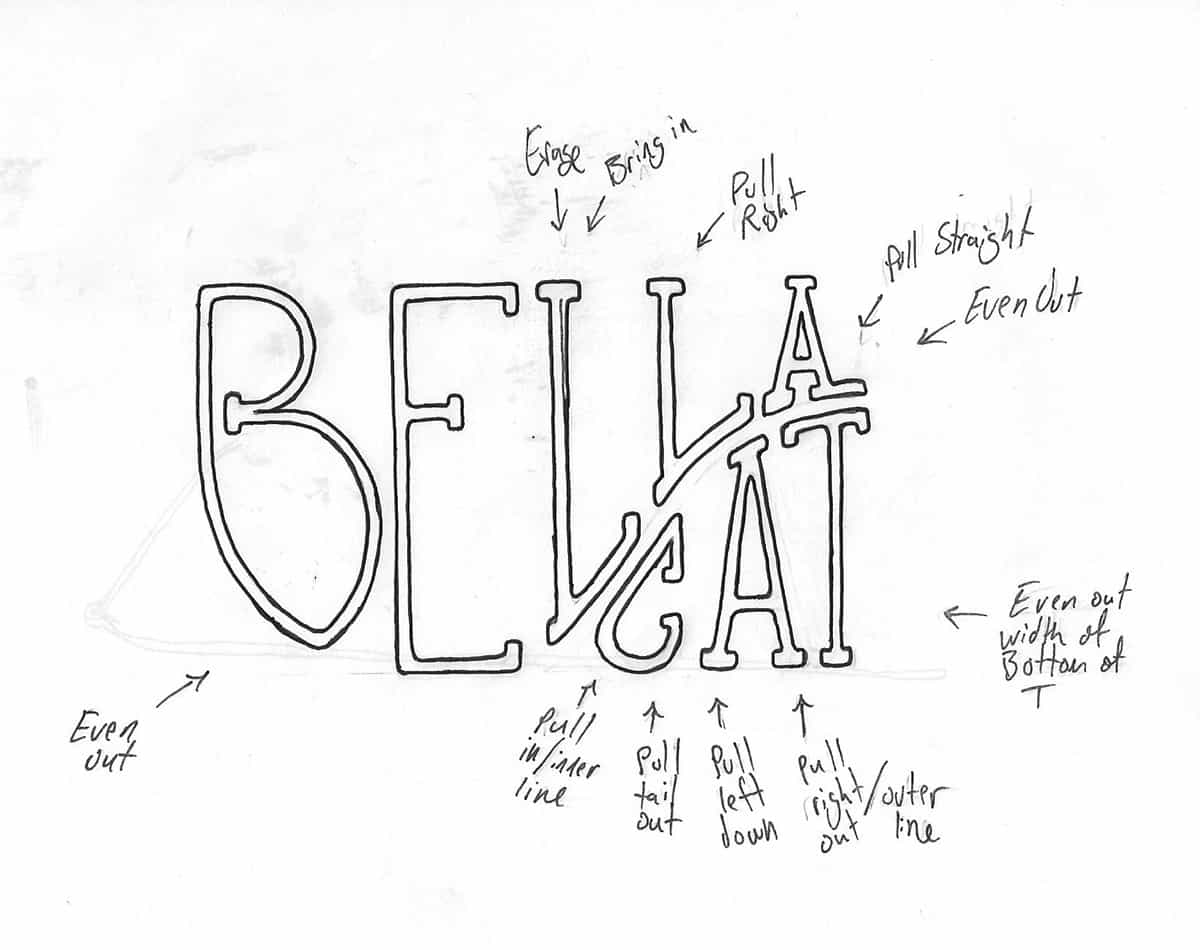 Erase
Bring in
Pull
Right
Pull Straight
Even Out
BELLA
CAT
Even out
width of
Bottom of
T
Even
out
Pull
in/inner
line
Pull
tail
out
Pull
left
down
Pull
right/outer
out line